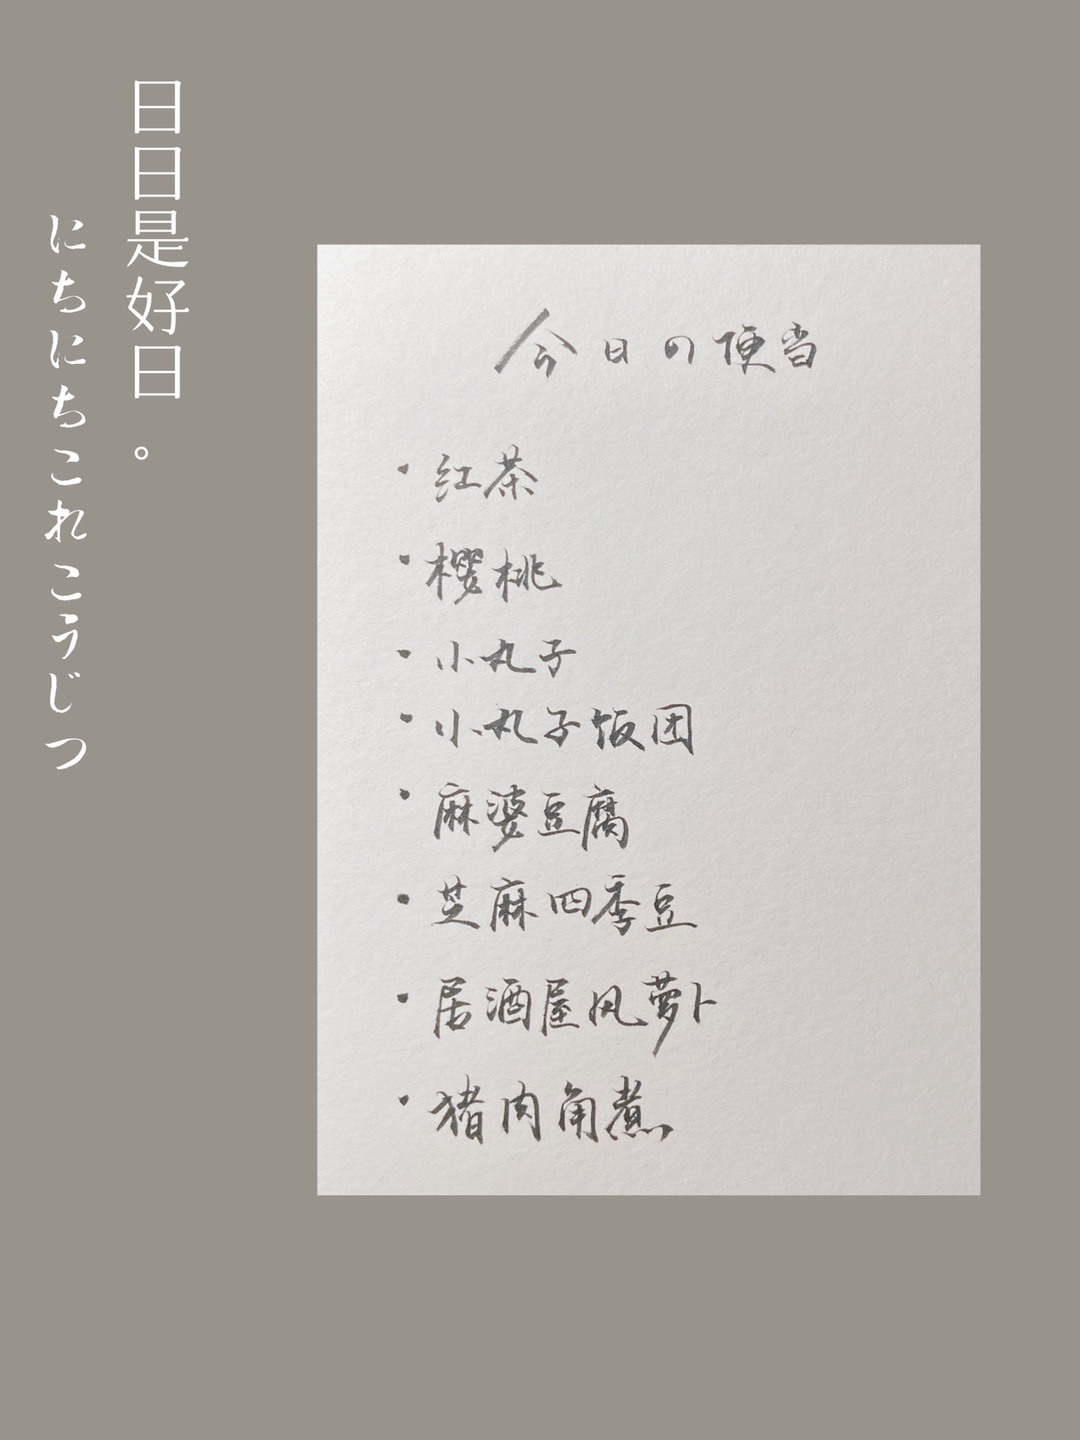 日日是好日。
にちにちこれこうじつ
今日の便当
・红茶
・樱桃
・小丸子
・小丸子饭团
・麻婆豆腐
・芝麻四季豆
・居酒屋风萝卜
・猪肉角煮